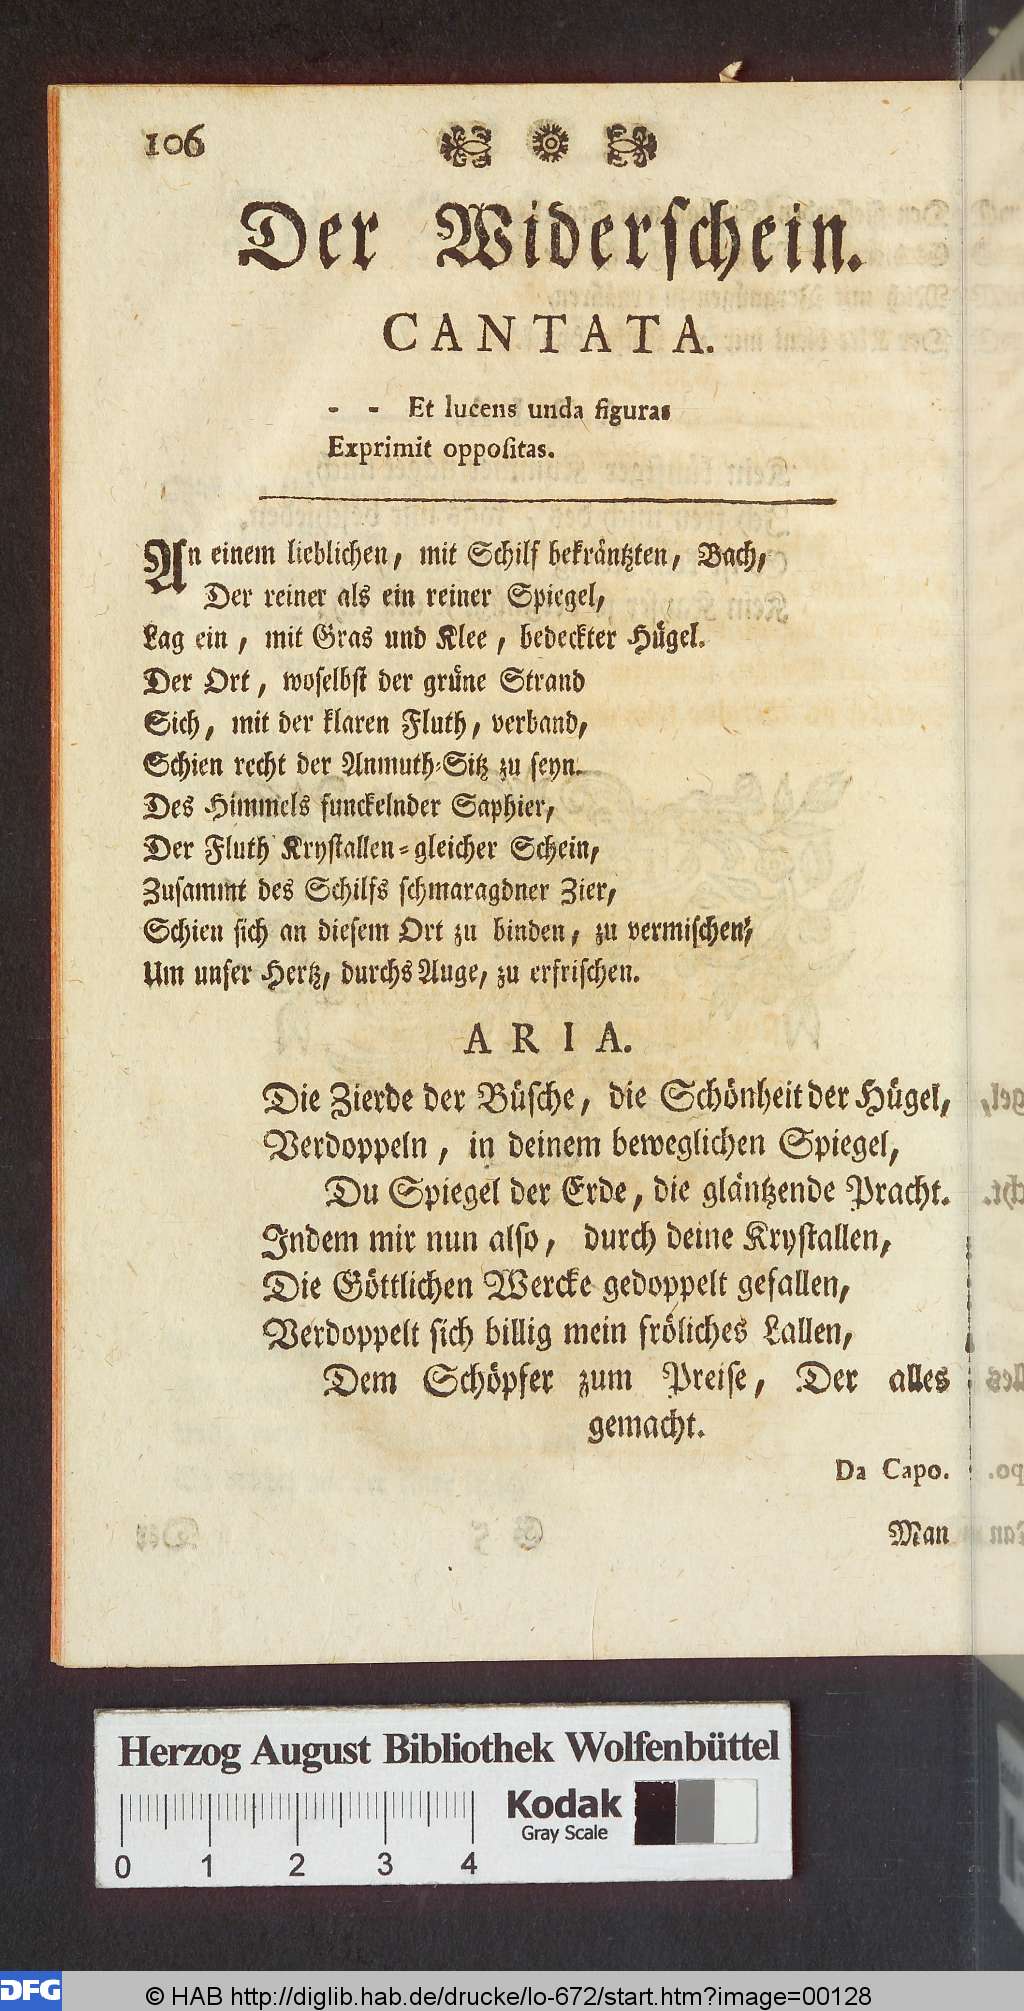 106
Der Widerschein.
CANTATA.
- - Et lucens unda figuras
Exprimit oppoſitas.
An einem lieblichen, mit Schilf bekräntzten, Bach,
Der reiner als ein reiner Spiegel,
Lag ein, mit Gras und Klee, bedeckter Hügel.
Der Ort, woſelbſt der grüne Strand
Sich, mit der klaren Fluth, verband,
Schien recht der Anmuth-Sitz zu ſeyn.
Des Himmels funckelnder Saphier,
Der Fluth Kryſtallen-gleicher Schein,
Zuſammt des Schilfs ſchmaragdner Zier,
Schien ſich an dieſem Ort zu binden, zu vermiſchen,
Um unſer Hertz, durchs Auge, zu erfriſchen.
ARIA.
Die Zierde der Büſche, die Schönheit der Hügel,
Verdoppeln, in deinem beweglichen Spiegel,
Du Spiegel der Erde, die gläntzende Pracht.
Indem mir nun alſo, durch deine Kryſtallen,
Die Göttlichen Wercke gedoppelt gefallen,
Verdoppelt ſich billig mein fröliches Lallen,
Dem Schöpfer zum Preiſe, Der alles
gemacht.
Da Capo.
Man
Herzog August Bibliothek Wolfenbüttel
Kodak
Gray Scale
0 1 2 3 4
DFG
© HAB http://diglib.hab.de/drucke/lo-672/start.htm?image=00128